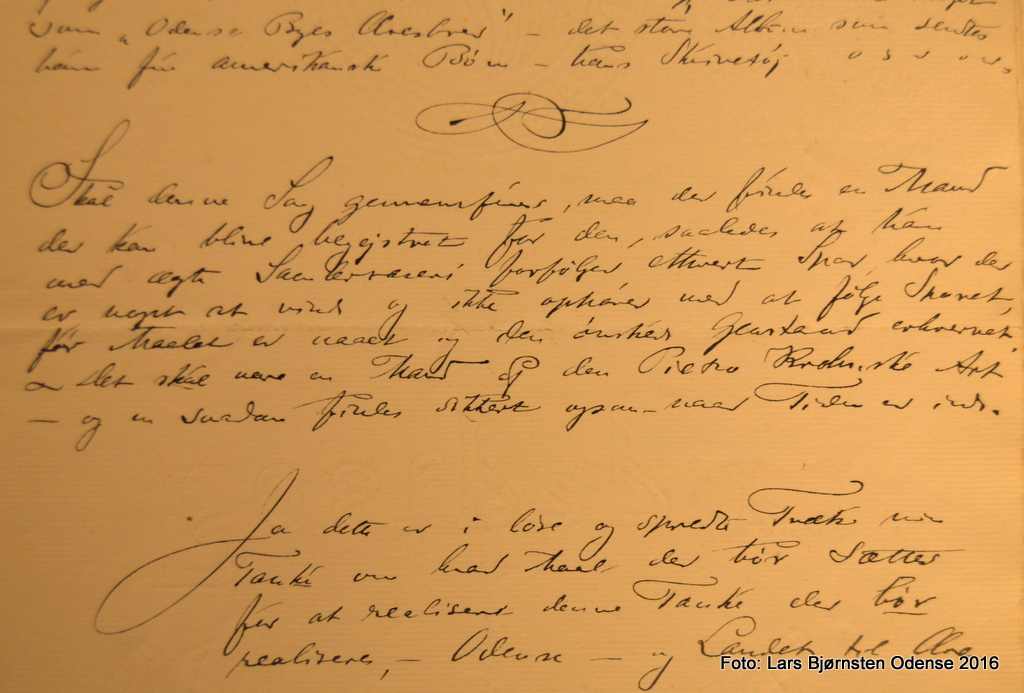 som „Odense Byes Æresbrev" – det store Album som sendtes
ham fra amerikanske Børn – hans Skrivetøj o s v o s v.
Skal denne Sag gennemføres, maa der findes en Mand
der kan blive begejstret for den, saaledes at han
med ægte Samlervaneri forfølger ethvert Spor, hvor der
er noget at vinde og ikke ophører med at følge Sporet,
før Maalet er naaet og den ønskede Genstand erhvervet.
Det skal være en Mand af den Pietro Krohnske Art
– og en saadan findes sikkert ogsaa – naar Tiden er inde.
Ja dette er i løse og spredte Træk min
Tanke om hvad Maal der bør sættes
for at realisere denne Tanke der bør
realiseres, – Odense – og Landet til Ære
Foto: Lars Bjørnsten Odense 2016